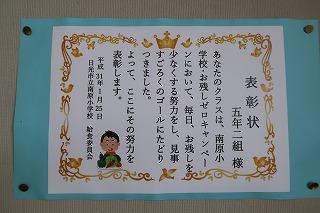 表彰状
五年二組 様
あなたのクラスは、南原小
学校・お残しゼロキャンペー
ンにおいて、毎日、お残しを
少なくする努力をし、見事
すごろくのゴールにたどり
つきました。
よって、ここにその努力を
表彰します。
平成31年1月25日
日光市立南原小学校 給食委員会